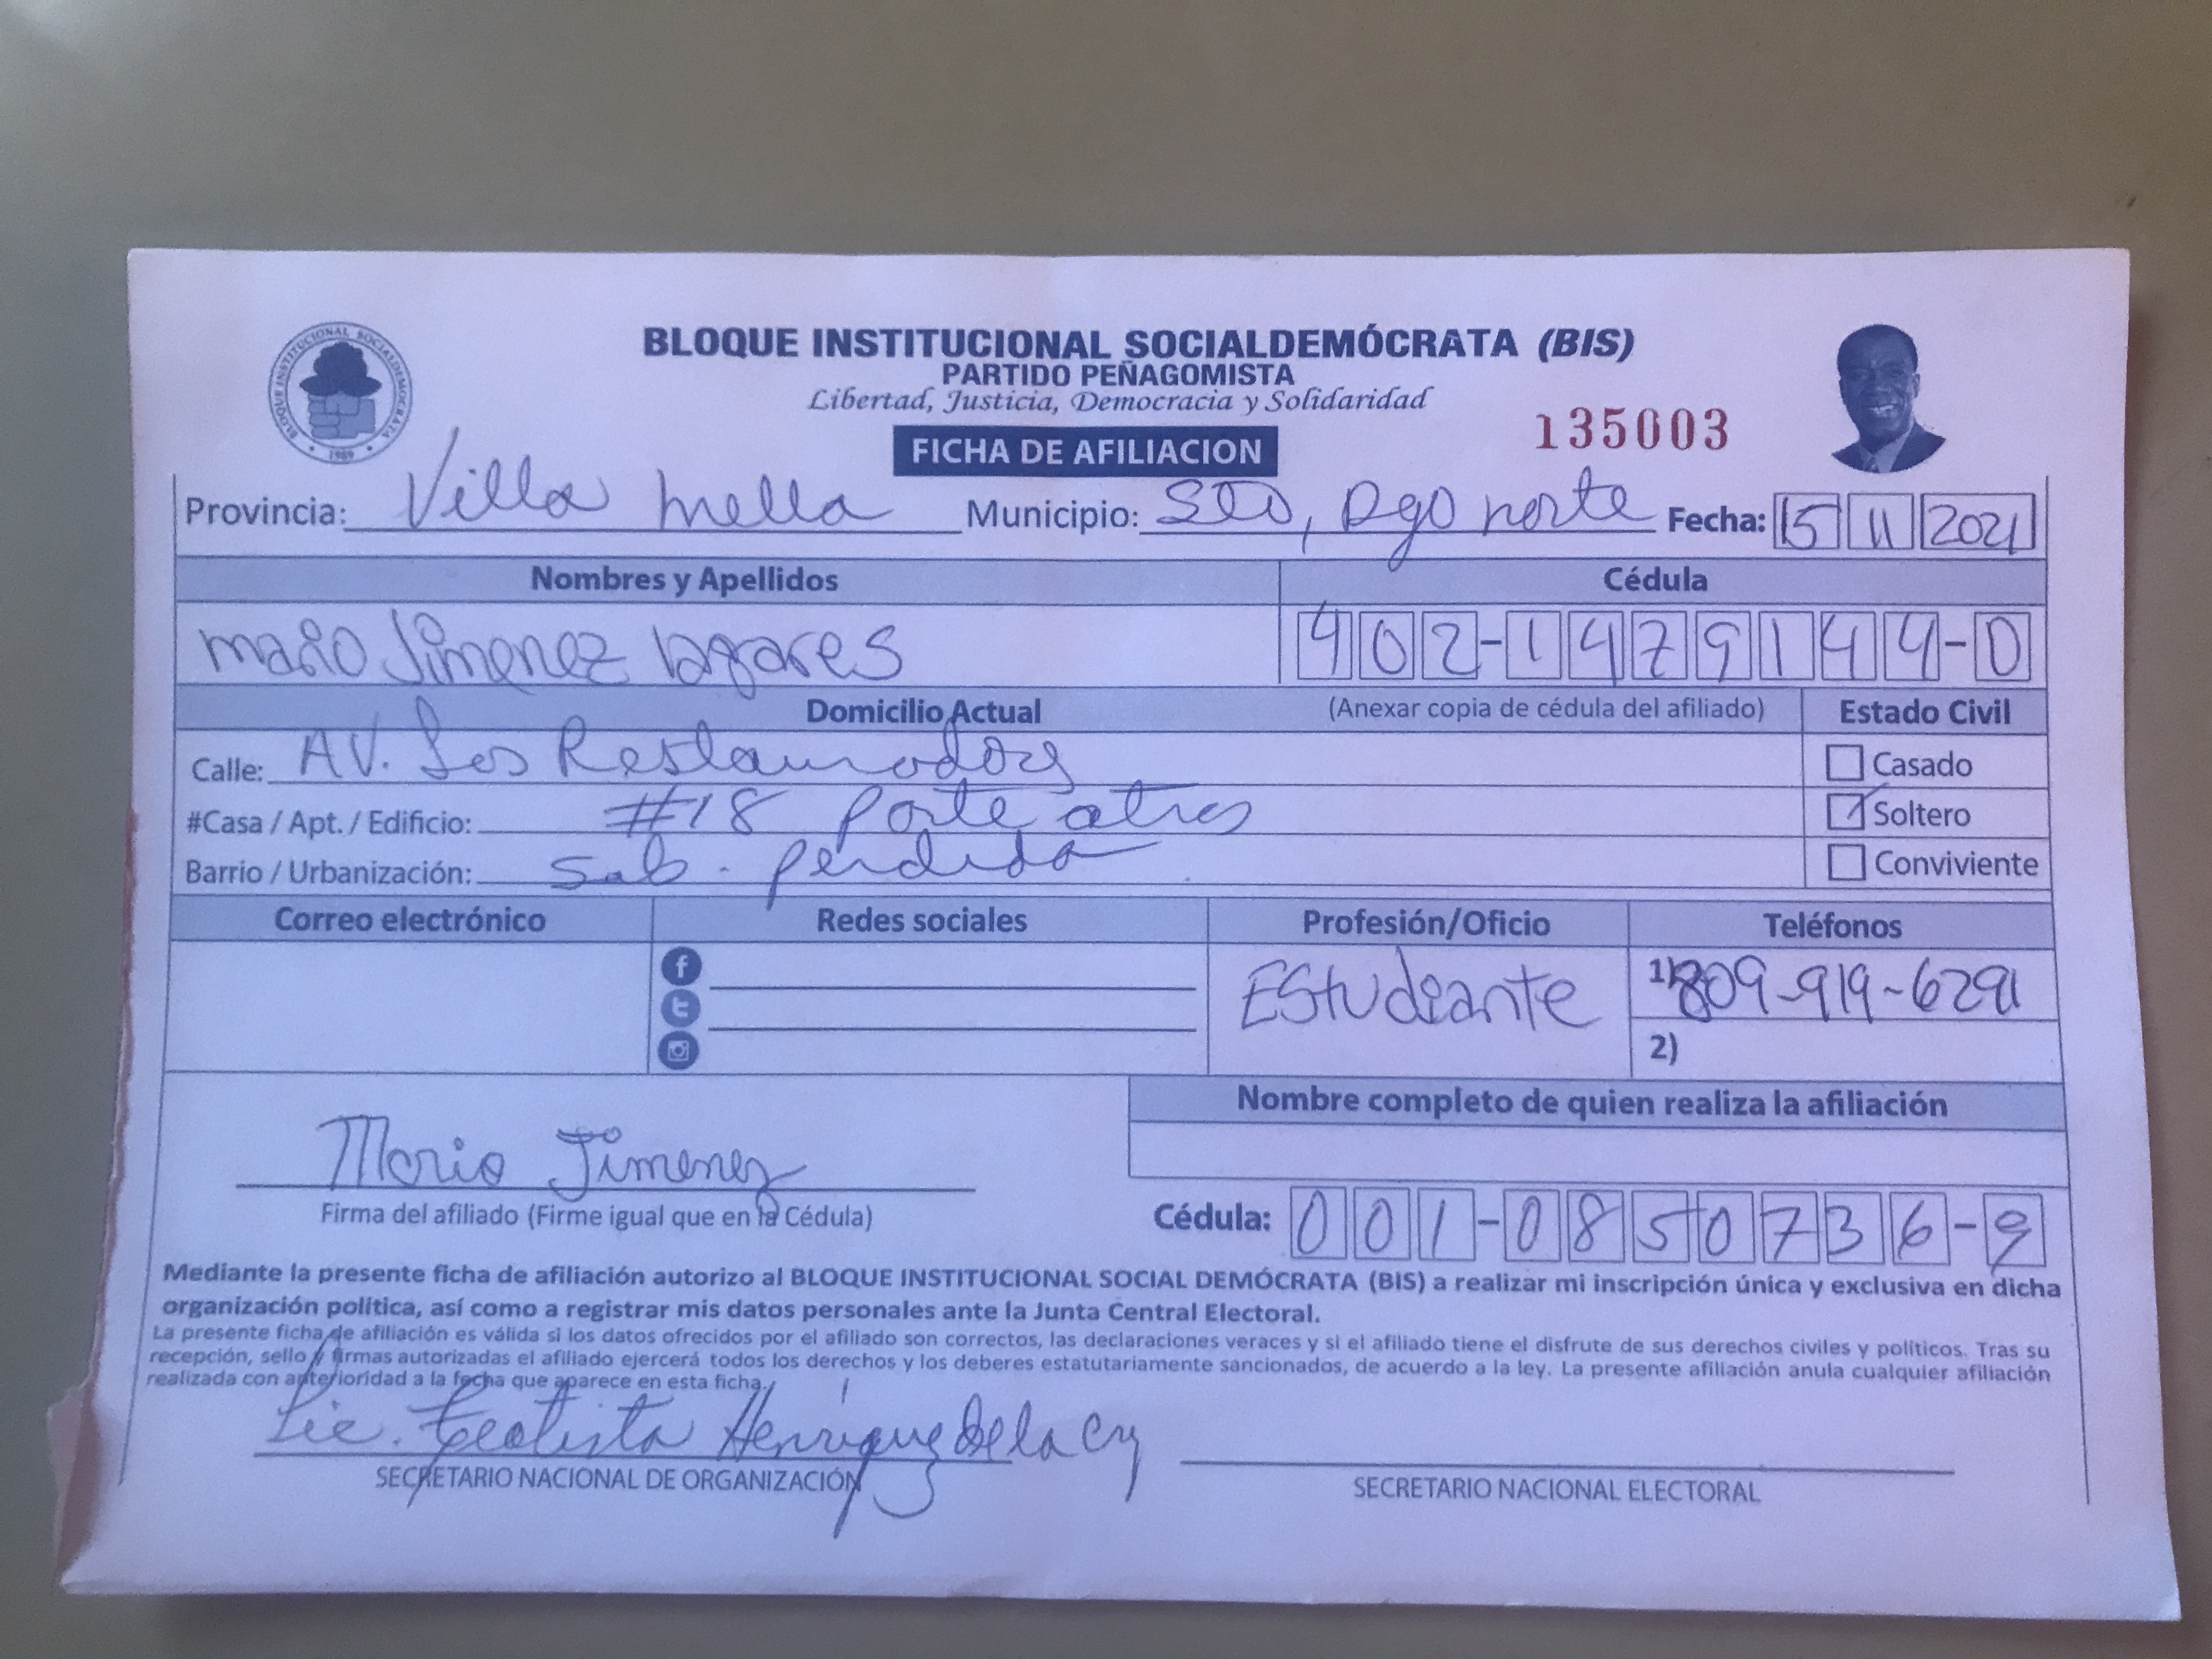 BLOQUE INSTITUCIONAL SOCIALDEMOCRATA
1989
BLOQUE INSTITUCIONAL SOCIALDEMÓCRATA (BIS)
PARTIDO PEÑAGOMISTA
Libertad, Justicia, Democracia y Solidaridad
135003
FICHA DE AFILIACION
Provincia: Villa mella Municipio: STO, Dgo norte Fecha: 15 11 2021
Nombres y Apellidos Cédula
mario Jimenez lagares 402-1479144-0
Domicilio Actual (Anexar copia de cédula del afiliado) Estado Civil
Calle: AV. Los Restauradores Casado
#Casa / Apt. / Edificio: #18 Parte atras Soltero
Barrio / Urbanización: Sab. perdida Conviviente
Correo electrónico Redes sociales Profesión/Oficio Teléfonos
Estudiante 1) 809-919-6291
2)
Nombre completo de quien realiza la afiliación
Mario Jimenez
Firma del afiliado (Firme igual que en la Cédula) Cédula: 001-0850736-9
Mediante la presente ficha de afiliación autorizo al BLOQUE INSTITUCIONAL SOCIAL DEMÓCRATA (BIS) a realizar mi inscripción única y exclusiva en dicha
organización política, así como a registrar mis datos personales ante la Junta Central Electoral.
La presente ficha de afiliación es válida si los datos ofrecidos por el afiliado son correctos, las declaraciones veraces y si el afiliado tiene el disfrute de sus derechos civiles y políticos. Tras su
recepción, sello y firmas autorizadas el afiliado ejercerá todos los derechos y los deberes estatutariamente sancionados, de acuerdo a la ley. La presente afiliación anula cualquier afiliación
realizada con anterioridad a la fecha que aparece en esta ficha.
Lic. Henriquez De la Cruz
SECRETARIO NACIONAL DE ORGANIZACIÓN SECRETARIO NACIONAL ELECTORAL